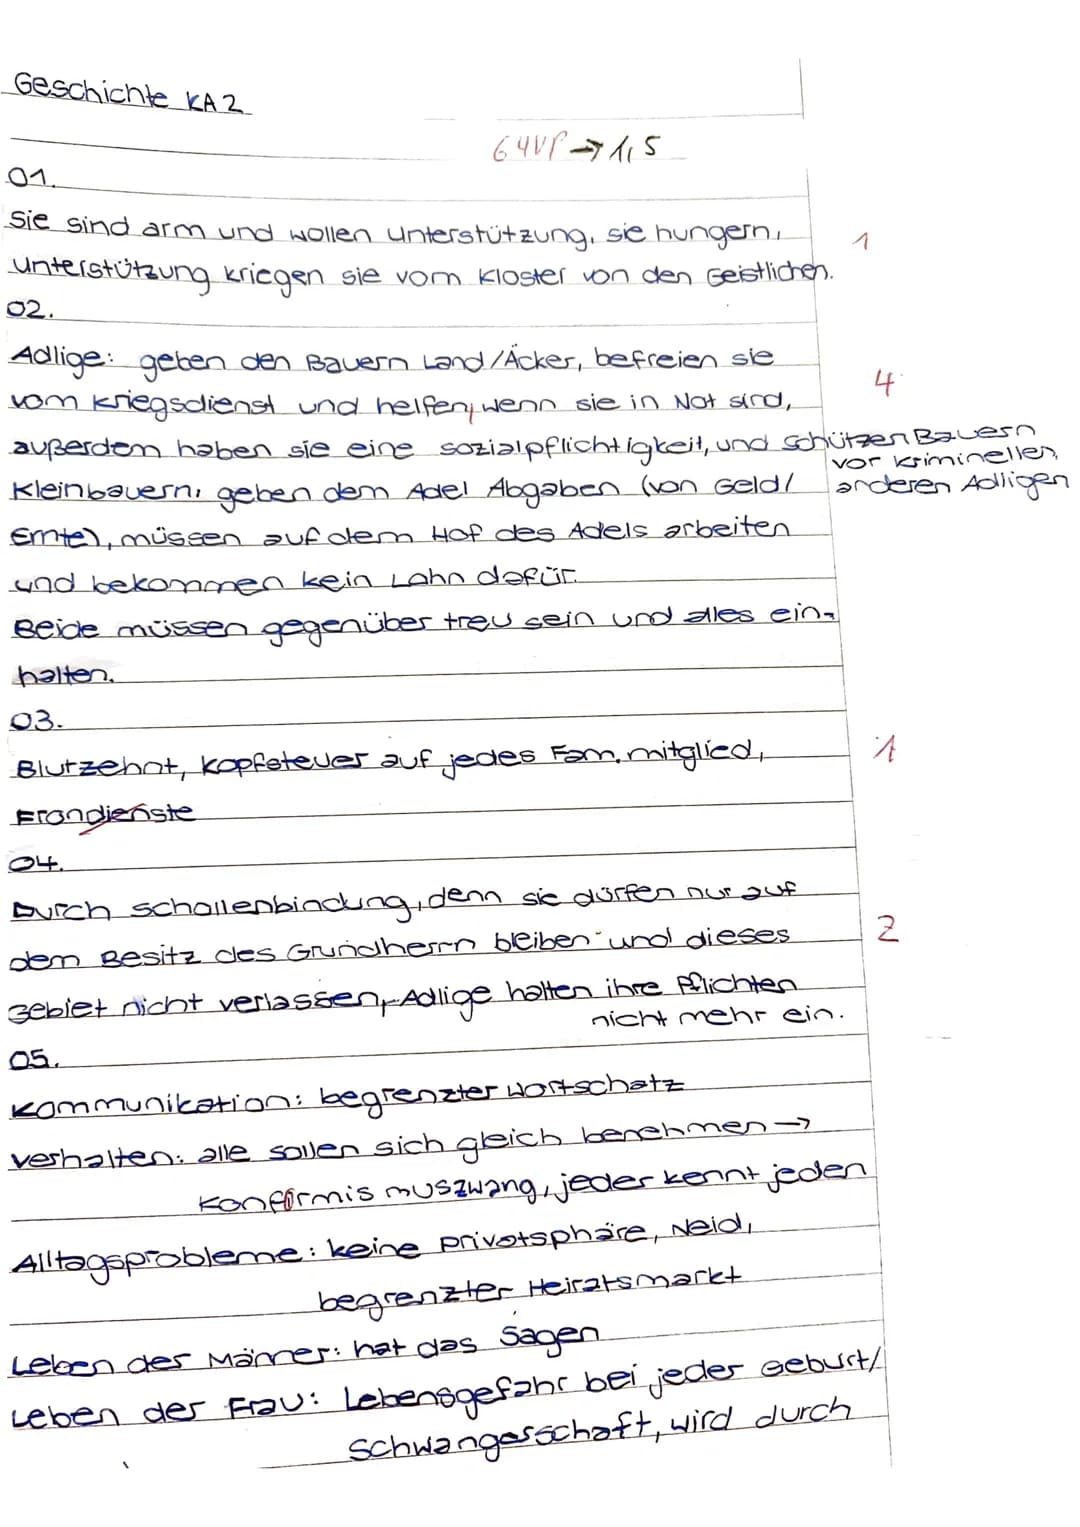 Geschichte KA 2
64VP → 1,5
01.
Sie sind arm und wollen Unterstützung, sie hungern, 1
Unterstützung kriegen sie vom Kloster von den Geistlichen.
02.
Adlige: geben den Bauern Land/Äcker, befreien sie
vom Kriegsdienst und helfen, wenn sie in Not sind, 4
außerdem haben sie eine sozialpflichtigkeit, und schützen Bauern
vor kriminellen,
anderen Adligen
Kleinbauern: geben dem Adel Abgaben (von Geld/
Ernte), müssen auf dem Hof des Adels arbeiten
und bekommen kein Lohn dafür.
Beide müssen gegenüber treu sein und alles ein-
halten.
03.
Blutzehnt, Kopfsteuer auf jedes Fam.mitglied, 1
Frondienste
04.
Durch schollenbindung, denn sie dürfen nur auf
dem Besitz des Grundherrn bleiben und dieses 2
Gebiet nicht verlassen, Adlige halten ihre Pflichten
nicht mehr ein.
05.
Kommunikation: begrenzter Wortschatz
Verhalten: alle sollen sich gleich benehmen →
Konformismuszwang, jeder kennt jeden
Alltagsprobleme: keine Privatsphäre, Neid,
begrenzter Heiratsmarkt
Leben der Männer: hat das Sagen
Leben der Frau: Lebensgefahr bei jeder Geburt/
Schwangerschaft, wird durch